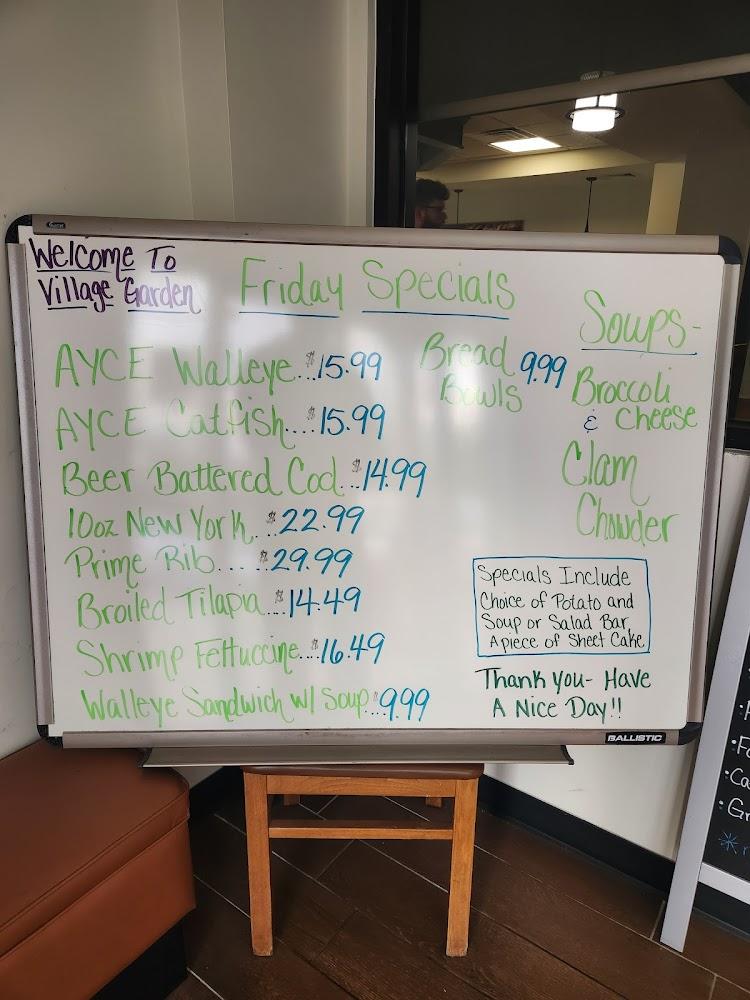 Welcome To
Village Garden
Friday Specials
AYCE Walleye...$15.99
AYCE Catfish....$15.99
Beer Battered Cod...$14.99
10oz New York...$22.99
Prime Rib.....$29.99
Broiled Tilapia...$14.49
Shrimp Fettuccine...$16.49
Walleye Sandwich w/ Soup..$9.99
Bread 9.99
Bowls
Soups-
Broccoli
& Cheese
Clam
Chowder
Specials Include
Choice of Potato and
Soup or Salad Bar,
A piece of Sheet Cake
Thank you- Have
A Nice Day!!
BALLISTIC